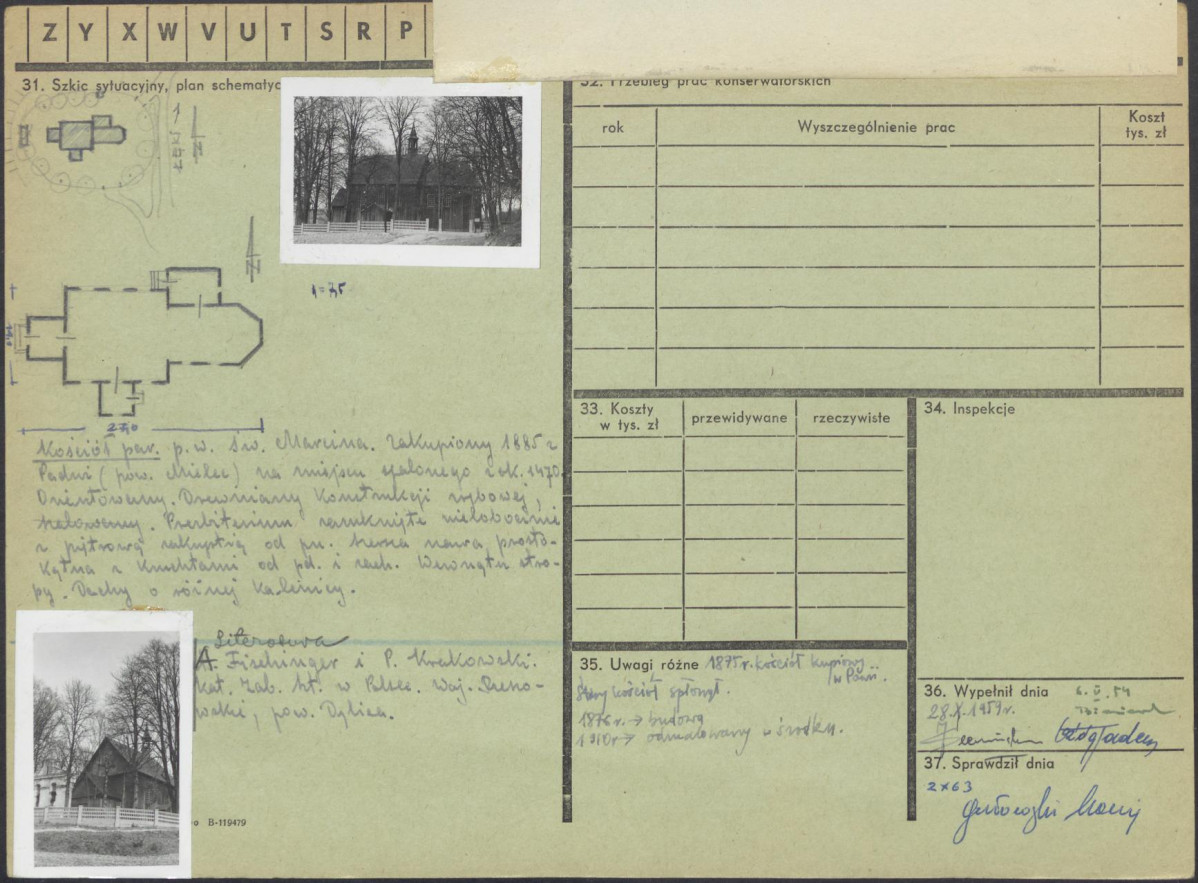 Z Y X W V U T S R P
31. Szkic sytuacyjny, plan schematyc
1=75
27,0
Kościół par. p.w. św. Marcina. Zakupiony 1885 z
Padwi (pow. Mielec) na miejscu spalonego z ok. 1470.
Orientowany. Drewniany konstrukcji zrębowej,
szalowany. Prezbiterium zamknięte wielobocznie
z piętrową zakrystią od pn. szersza nawa prosto-
kątna z kruchtami od pd. i zach. Wewnątrz stro-
py. Dachy o różnej kalenicy.
Literatura
A. Fischinger i P. Krakowski.
Kat. Zab. Szt. w Polsce. Woj. Rzeszo-
wskie, pow. Dębica.
o B-119479
32. Przebieg prac konserwatorskich
rok
Wyszczególnienie prac
Koszt
tys. zł
33. Koszty
w tys. zł
przewidywane
rzeczywiste
34. Inspekcje
35. Uwagi różne 1875 r. kościół kupiony
w
Stary kościół spłonął.
1876 r. → budowa
1910 r → odmalowany w środku.
36. Wypełnił dnia
28.X.1959r.
37. Sprawdził dnia
2 X 63